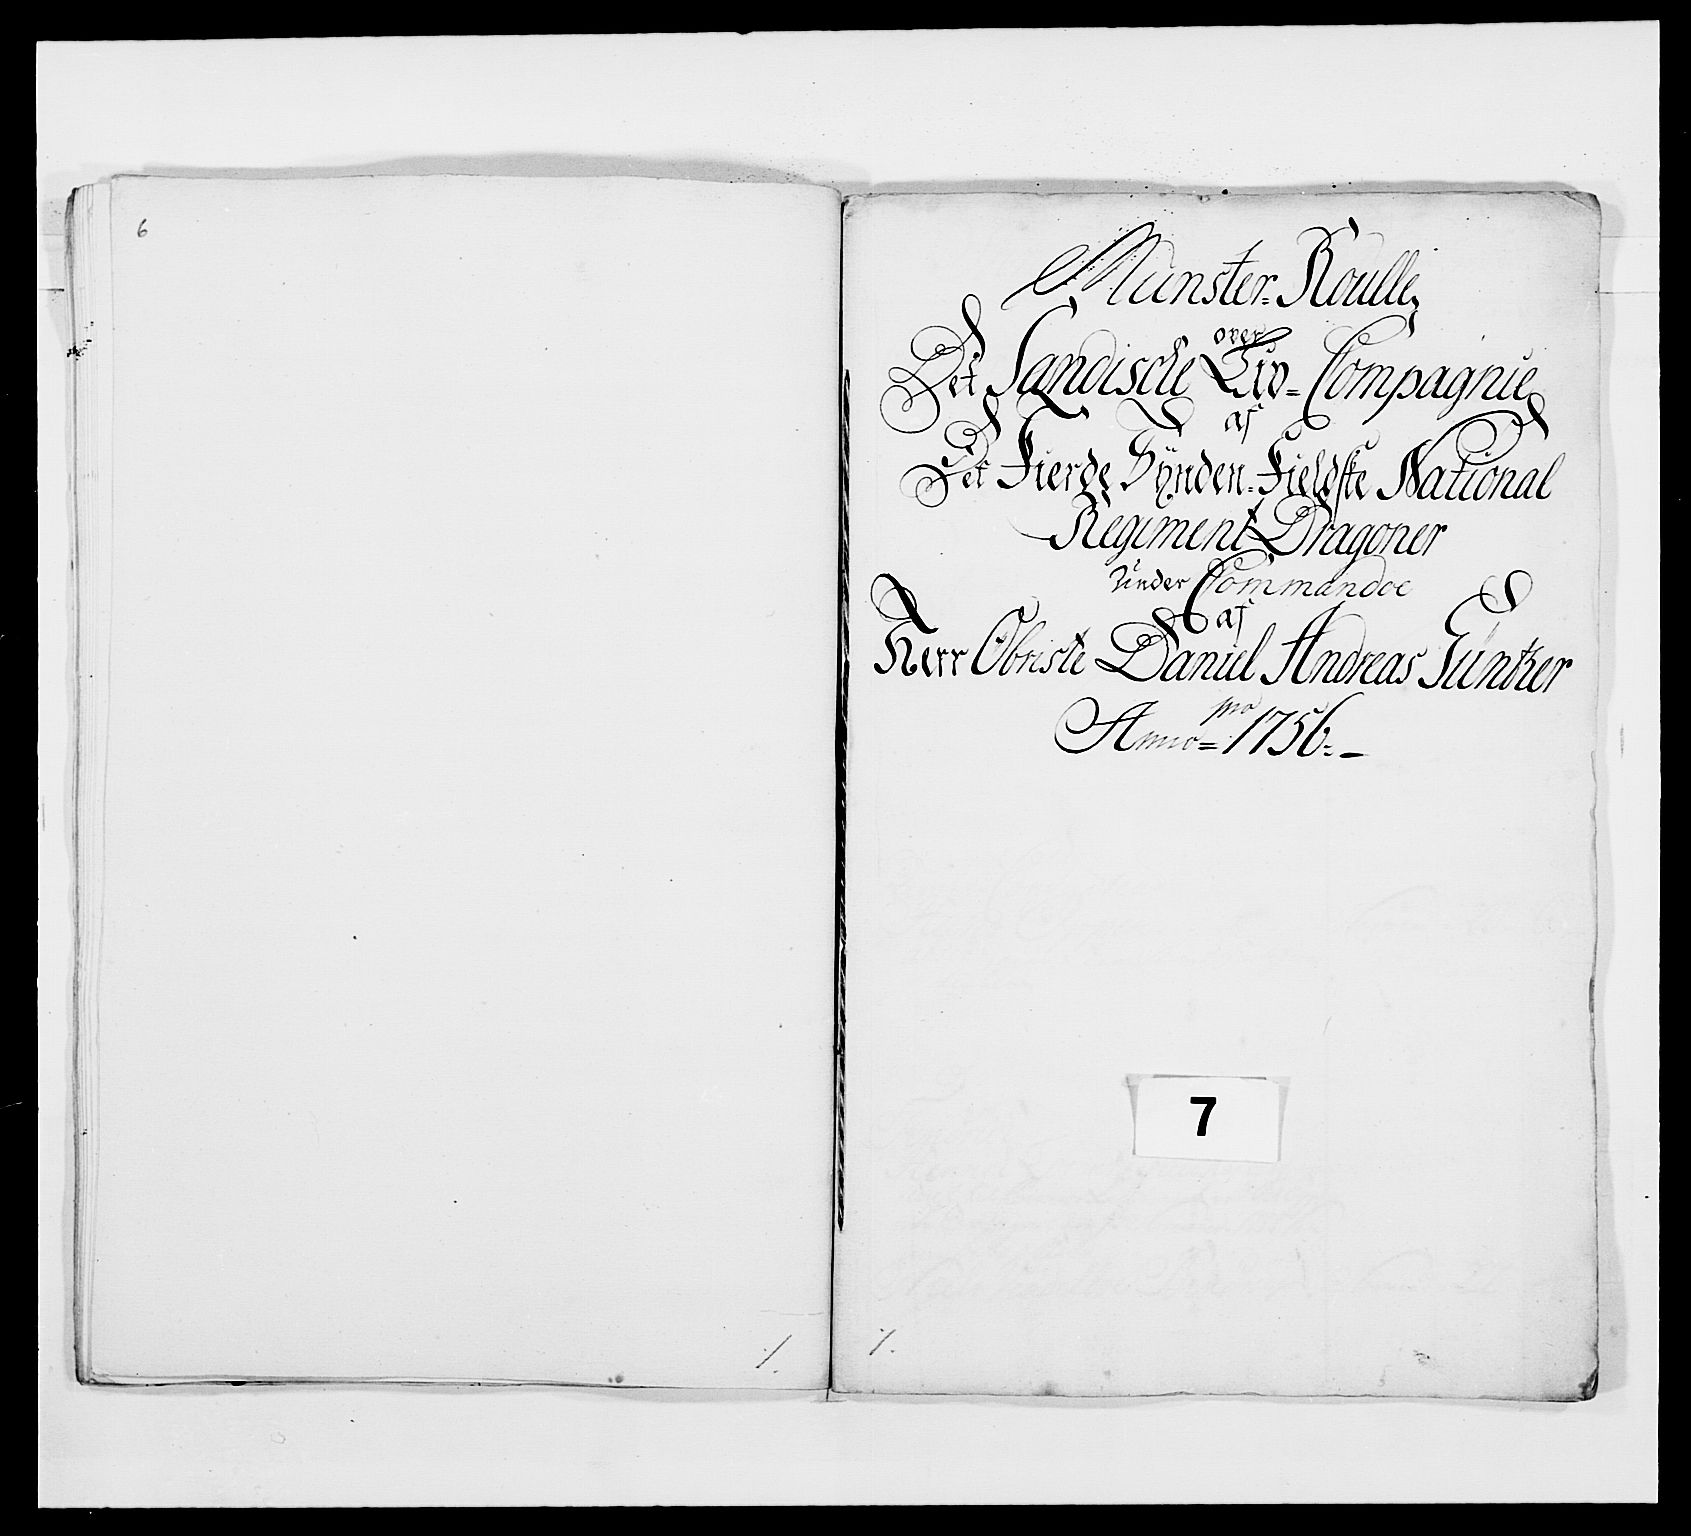 6
Munster-Roulle,
over
Det Sandische Liv-Compagnie
af
Det Fierde Synden-Fieldske National
Regiment Dragoner
Under Commandoe
af
Herr Obriste Daniel Andreas Güntzer
pro
Anno=1756=-
7